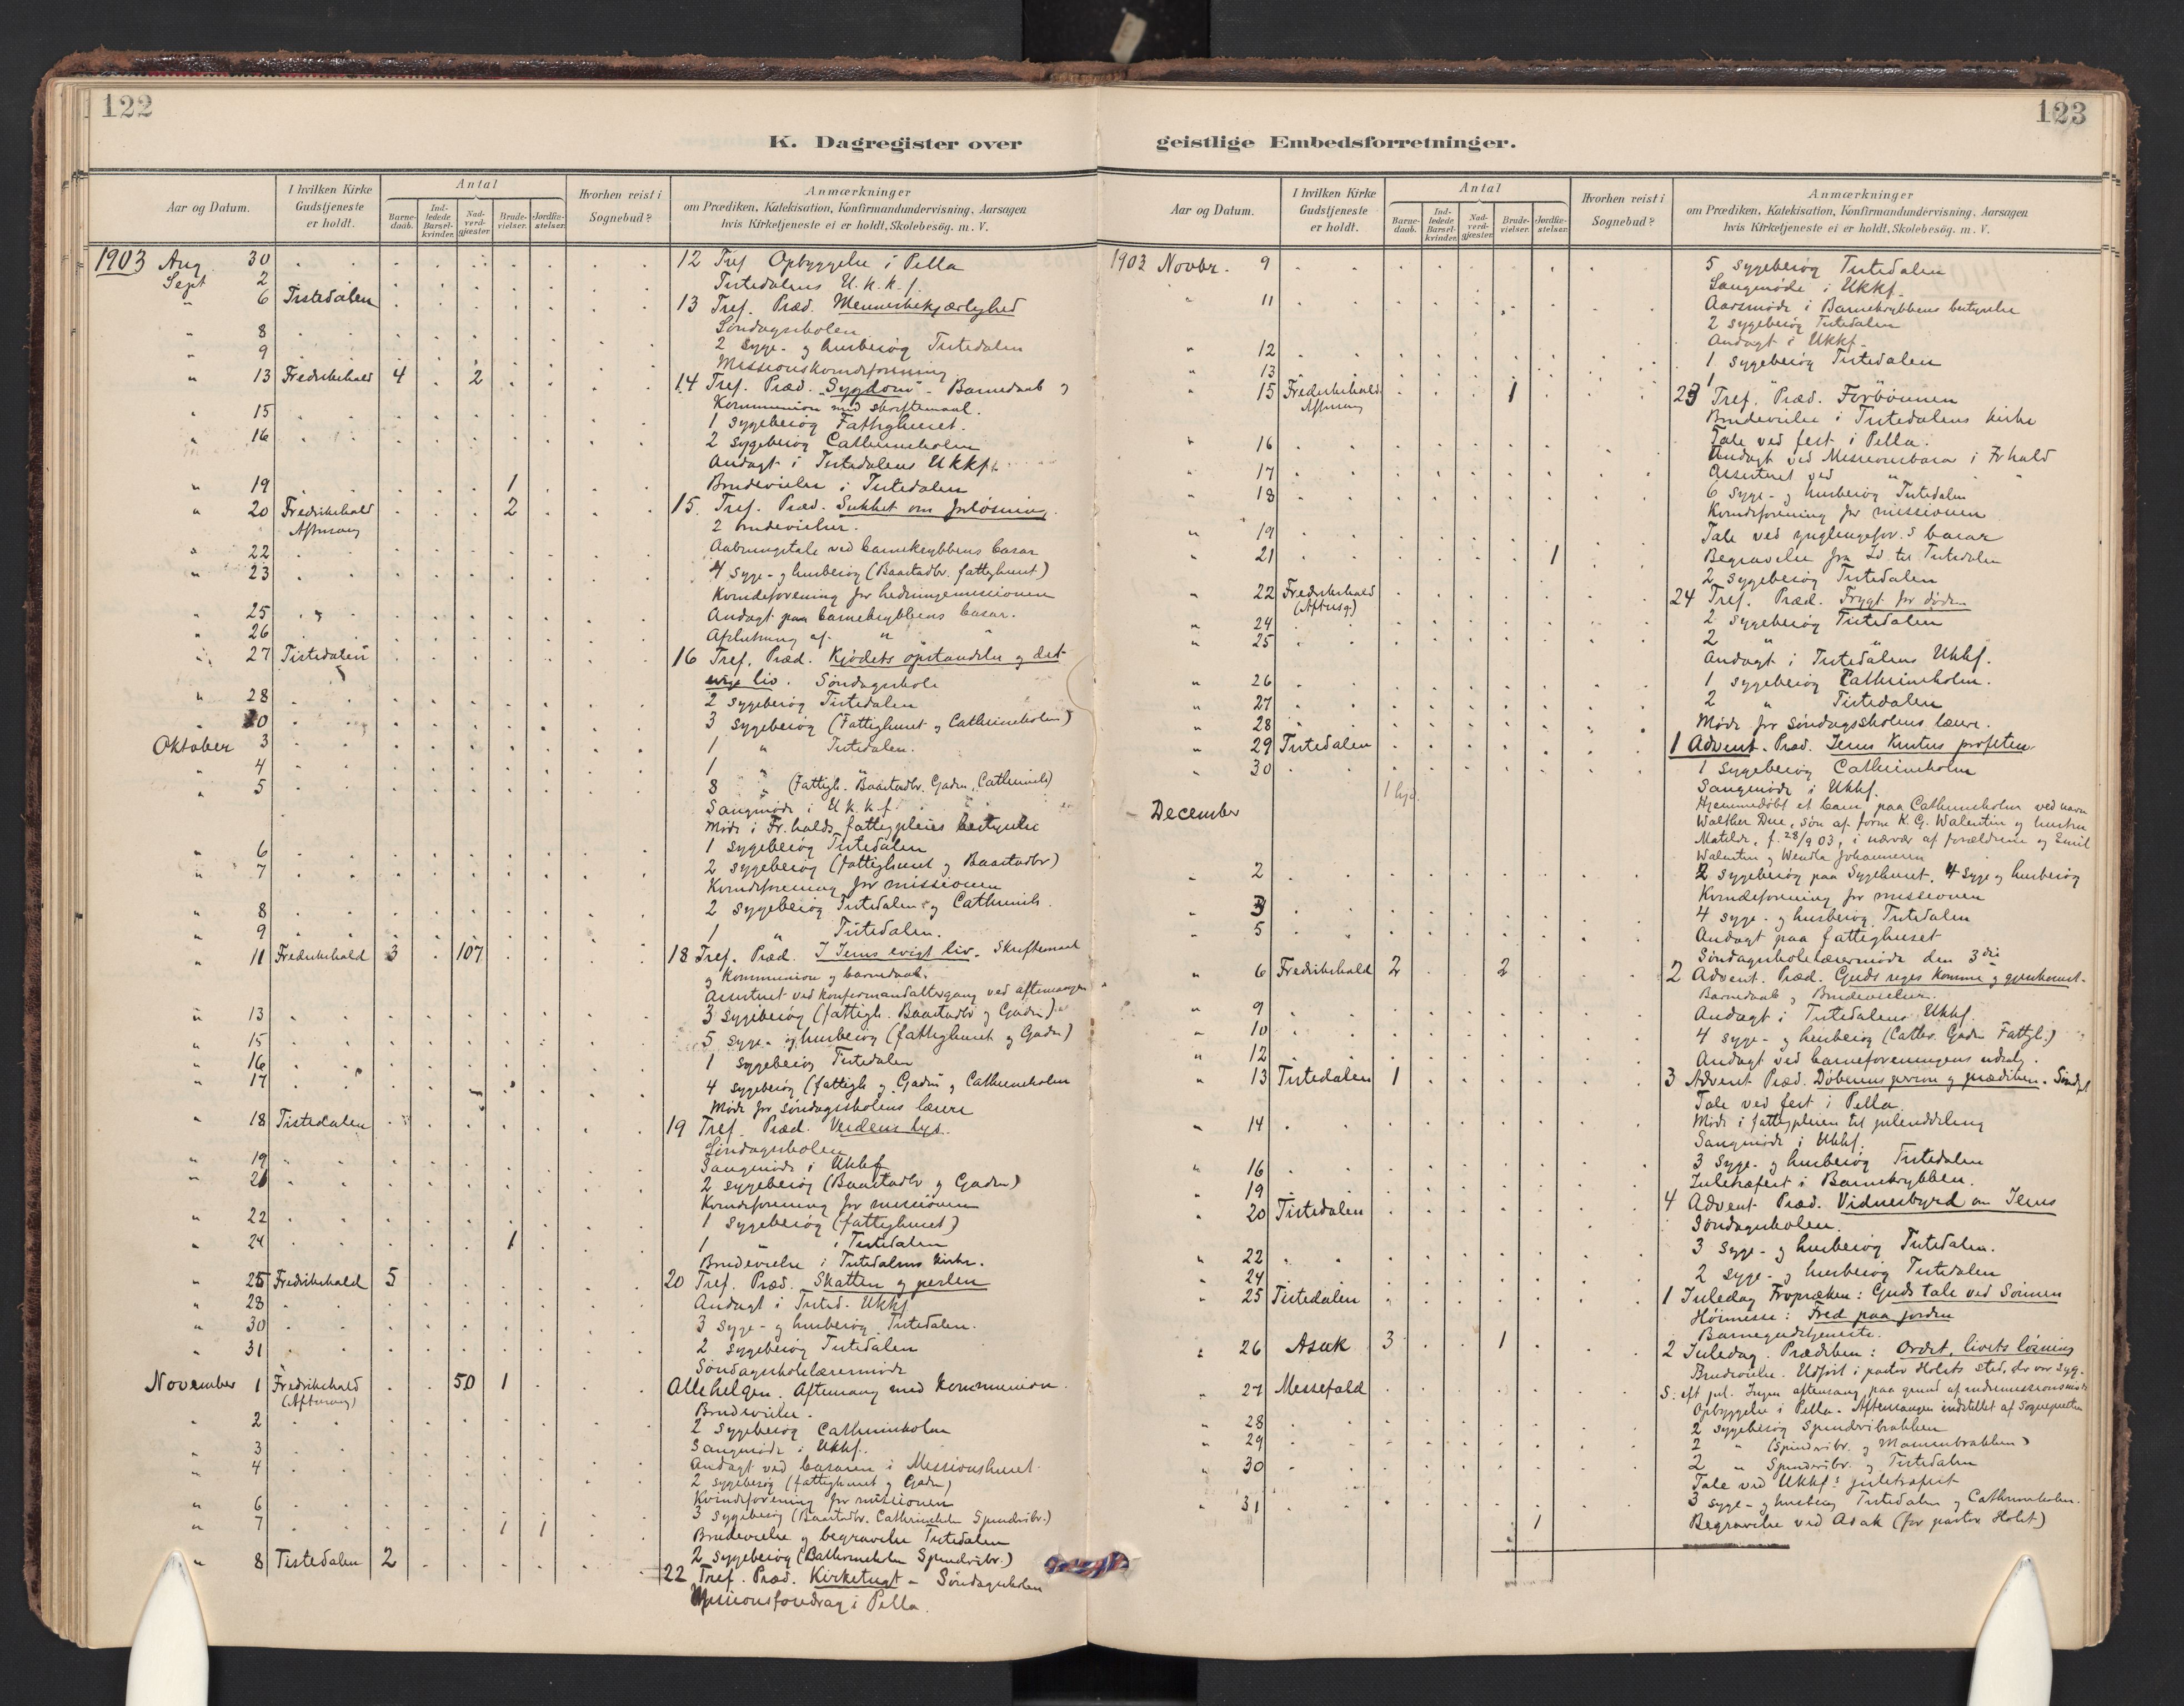 122
K. Dagregister over
Aar og Datum.
I hvilken Kirke Gudstjeneste er holdt.
Antal
Barnedaab.
Indledede Barselkvinder.
Nadverdgjæster.
Brudevielser.
Jordfæstelser.
Hvorhen reist i Sognebud?
Anmærkninger
om Prædiken, Katekisation, Konfirmandundervisning, Aarsagen
hvis Kirketjeneste ei er holdt, Skolebesøg. m. V.
1903 Aug 30 12 Tref Opbyggelse i Pella
Sept 2 Tistedalens U.k.k.f.
" 6 Tistedalen 13 Tref. Præd. Menneskekjærlighed
Søndagsskolen
" 8 2 Syge- og husbesøg Tistedalen
" 9 Missionskvindeforening
" 13 Fredrikshald 4 2 14 Tref. Præd. "Sygdom" - Barnedaab og
Kommunion med skriftemaal.
" 15 1 sygebesøg Fattighuset.
" 16 2 sygebesøg Cathrineholm
Andagt i Tistedalens Ukkf.
" 19 1 Brudevielse i Tistedalen
" 20 Fredrikshald 2 15. Tref. Præd. Sukket om forløsning.
Aftensang 2 brudevielser.
" 22 Aabningstale ved barnekrybbens basar
" 23 4 syge- og husbesøg (Baastadbr. fattighuset)
Kvindeforening for hedningemissionen
" 25 Andagt paa barnekrybbens basar.
" 26 Afslutning af " "
" 27 Tistedalen 16 Tref. Præd. Kjødets opstandelse og det
evige liv. Søndagsskole
" 28 2 sygebesøg Tistedalen
" 30 3 sygebesøg (Fattighuset og Cathrineholm)
Oktober 3 1 " Tistedalen.
" 4 1 " "
" 5 8 " (Fattigh. Baastadbr. Gaden, Cathrineh)
Sangmøde i U.k.k.f.
Møde i Fr.halds fattigpleies bestyrelse
" 6 1 sygebesøg Tistedalen
" 7 2 sygebesøg (fattighuset og Baastadbr)
Kvindeforening for missionen
" 8 2 sygebesøg Tistedalen og Cathrineh.
" 9 1 " Tistedalen.
" 11 Fredrikshald 3 107 18 Tref. Præd. I Jesus evigt liv. Skriftemaal
og kommunion og barnedaab.
Assisteret ved konfirmandaltergang ved aftensangen
" 13 3 sygebesøg (fattigh. Baastadbr og Gaden)
" 15 5 syge- og husbesøg (fattighuset og Gaden)
" 16 1 sygebesøg Tistedalen
" 17 4 sygebesøg (fattigh. og Gaden og Cathrineholm
Møde for søndagsskolens lærere
" 18 Tistedalen 19 Tref. Præd. Verdens lys.
Søndagsskolen
" 19 Sangmøde i Ukkf
" 21 2 sygebesøg (Baastadbr og Gaden)
Kvindeforening for missionen
" 22 1 sygebesøg (fattighuset)
" 24 1 1 " i Tistedalen
Brudevielse i Tistedalens kirke.
" 25 Fredrikshald 5 20 Tref. Præd. Skatten og perlen
" 28 Andagt i Tisted. Ukkf
" 30 3 syge- og husbesøg Tistedalen.
" 31 2 sygebesøg Tistedalen
Søndagsskolelærermøde
November 1 Fredrikshald 50 1 Allehelgen. Aftensang med kommunion.
(Aftensang) Brudevielse.
" 2 2 sygebesøg Cathrineholm
" 3 Sangmøde i Ukkf.
" 4 Andagt ved basaren i Missionshuset
2 sygebesøg (fattighuset og Gaden)
" 6 Kvindeforening for missionen
" 7 1 1 3 sygebesøg (Baastadbr. Cathrineholm Spinderibr.)
Brudevielse og begravelse Tistedalen
2 sygebesøg (Cathrineholm Spinderibr.)
" 8 Tistedalen 2 22 Tref. Præd. Kirketugt - Søndagsskolen
Missionsforedrag i Pella.
123
geistlige Embedsforretninger.
Aar og Datum.
I hvilken Kirke Gudstjeneste er holdt.
Antal
Barnedaab.
Indledede Barselkvinder.
Nadverdgjæster.
Brudevielser.
Jordfæstelser.
Hvorhen reist i Sognebud?
Anmærkninger
om Prædiken, Katekisation, Konfirmandundervisning, Aarsagen
hvis Kirketjeneste ei er holdt, Skolebesøg. m. V.
1903 Novbr. 9 5 sygebesøg Tistedalen
Sangmøde i Ukkf.
" 11 Aarsmøde i Barnekrybbens bestyrelse
2 sygebesøg Tistedalen
Andagt i Ukkf.
" 12 1 sygebesøg Tistedalen
" 13 1 " "
" 15 Fredrikshald 1 23 Tref. Præd. Forbønnen
Aftensang Brudevielse i Tistedalens kirke
Tale ved fest i Pella.
" 16 Andagt ved Missionsbasar i Frhald
" 17 Assisteret ved " "
" 18 6 syge- og husbesøg Tistedalen
Kvindeforening for missionen
" 19 Tale ved ynglingefor.s basar
" 21 1 Begravelse fra Id til Tistedalen
2 sygebesøg Tistedalen
" 22 Fredrikshald 24 Tref. Præd. Frygt for døden
(Aftensg)
" 24 2 sygebesøg Tistedalen
" 25 2 " "
Andagt i Tistedalens Ukkf.
" 26 1 sygebesøg Cathrineholm.
" 27 2 " Tistedalen
" 28 Møde for søndagsskolens lærere.
" 29 Tistedalen 1 Advent. Præd. Jesus Kristus profeten
" 30 1 sygebesøg Cathrineholm
Sangmøde i Ukkf.
1 hjd. Hjemmedøbt et barn paa Cathrineholm ved navn
December Walther Due, søn af form K. G. Walentin og hustru
Matilde, f. 28/9 03, i nærvær af forældrene og Emil
Walentin og Wendla Johannesen
" 2 2 sygebesøg paa Sygehuset. 4 syge og husbesøg
Kvindeforening for missionen
" 3 4 syge- og husbesøg Tistedalen
" 5 Andagt paa fattighuset
Søndagsskolelærermøde den 3die
" 6 Fredrikshald 2 2 2 Advent. Præd. Guds riges komme og gjenkomst.
Barnedaab og Brudevielser.
" 9 Andagt i Tistedalens Ukkf.
" 10 4 syge- og husbesøg (Cathr. Gaden Fattigh.)
" 12 Andagt ved barneforeningens udsalg.
" 13 Tistedalen 1 3 Advent Præd. Døberens person og prædiken. Søndgsk
Tale ved fest i Pella
" 14 Møde i fattigpleien til juleuddeling
Sangmøde i Ukkf.
" 16 3 syge- og husbesøg Tistedalen
" 19 Juletræfest i Barnekrybben.
" 20 Tistedalen 4 Advent Præd. Vidnesbyrd om Jesus
Søndagsskolen.
" 22 3 syge- og husbesøg Tistedalen.
" 24 2 syge- og husbesøg Tistedalen
" 25 Tistedalen 1 Juledag Fropræken: Guds tale ved Sønnen
Høimesse: Fred paa jorden
Barnegudstjeneste.
" 26 Asak 3 1 2 Juledag. Prædiken: Ordet, livets løsning
Brudevielse. Udført i pastor Holsts sted, der var syg.
" 27 Messefald S. eft jul. Ingen aftensang paa grund af indremissionsmøde
Opbyggelse i Pella. Aftensangen indstillet af Sognepresten
" 28 2 sygebesøg Spinderibakken
" 29 2 " (Spinderibr. og Mamenbakken)
" 30 2 " Spinderibr. og Tistedalen
Tale ved Ukkf.s juletræfest
" 31 3 syge- og husbesøg Tistedalen og Cathrineholm.
1 Begravelse ved Asak (for pastor Holst)